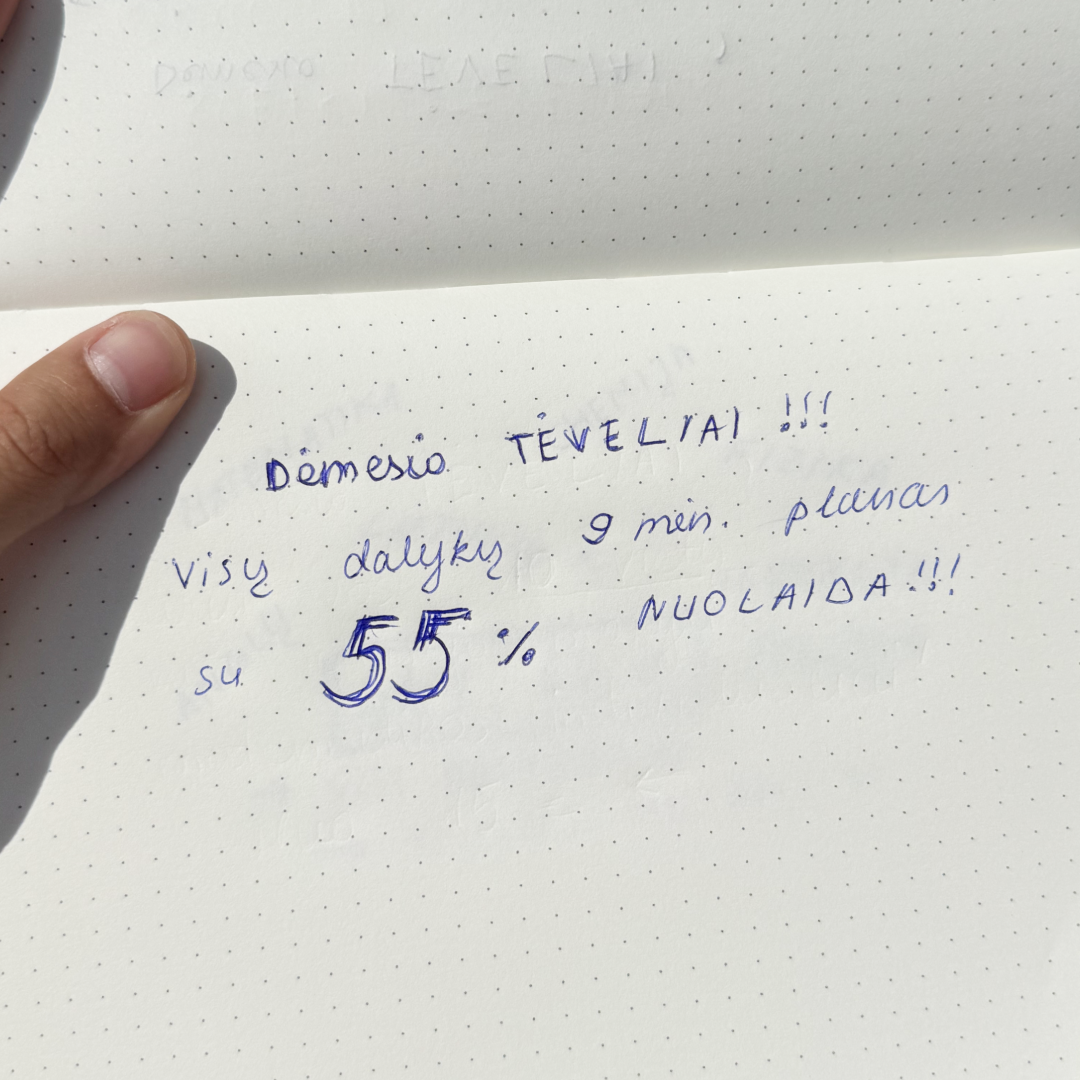 Dėmesio TĖVELIAI !!!
Visų dalykų 9 mėn. planas
su 55 % NUOLAIDA !!!